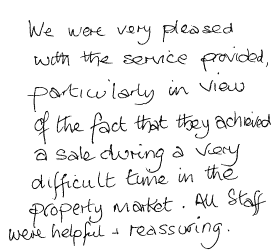 We were very pleased
with the service provided,
particularly in view
of the fact that they achieved
a sale during a very
difficult time in the
property market. All Staff
were helpful + reassuring.